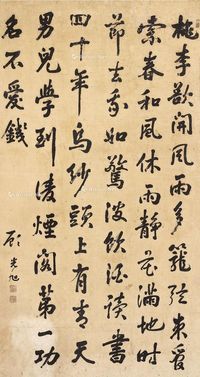 桃李欲開風雨多籠弦束管
柰春何風休雨靜花滿地時
節去我如驚波飲酒讀書
四十年烏紗頭上有青天
男兒學到凌煙閣第一功
名不愛錢
顧光旭